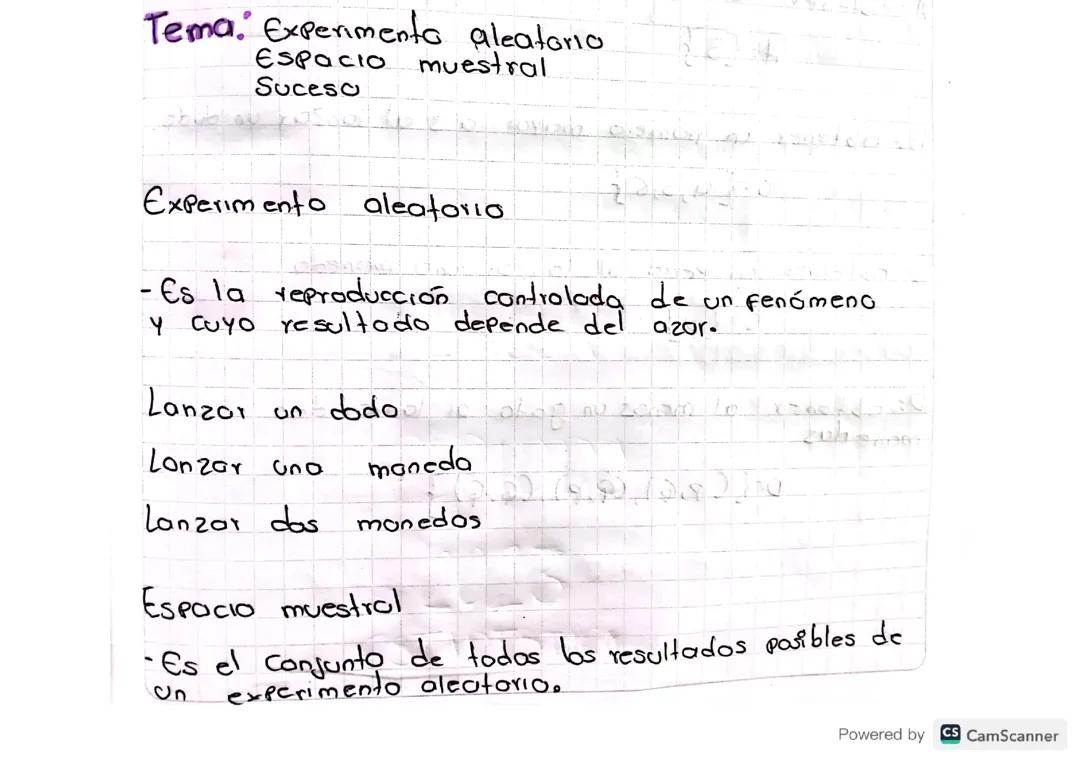 Tema: Experimento aleatorio
Espacio muestral
Suceso
Experimento aleatorio
- Es la reproducción controlada de un fenómeno
y cuyo resultado depende del azar.
Lanzar un dado
Lanzar una moneda
Lanzar dos monedas
Espacio muestral
- Es el conjunto de todos los resultados posibles de
un experimento aleatorio.
Powered by CS CamScanner